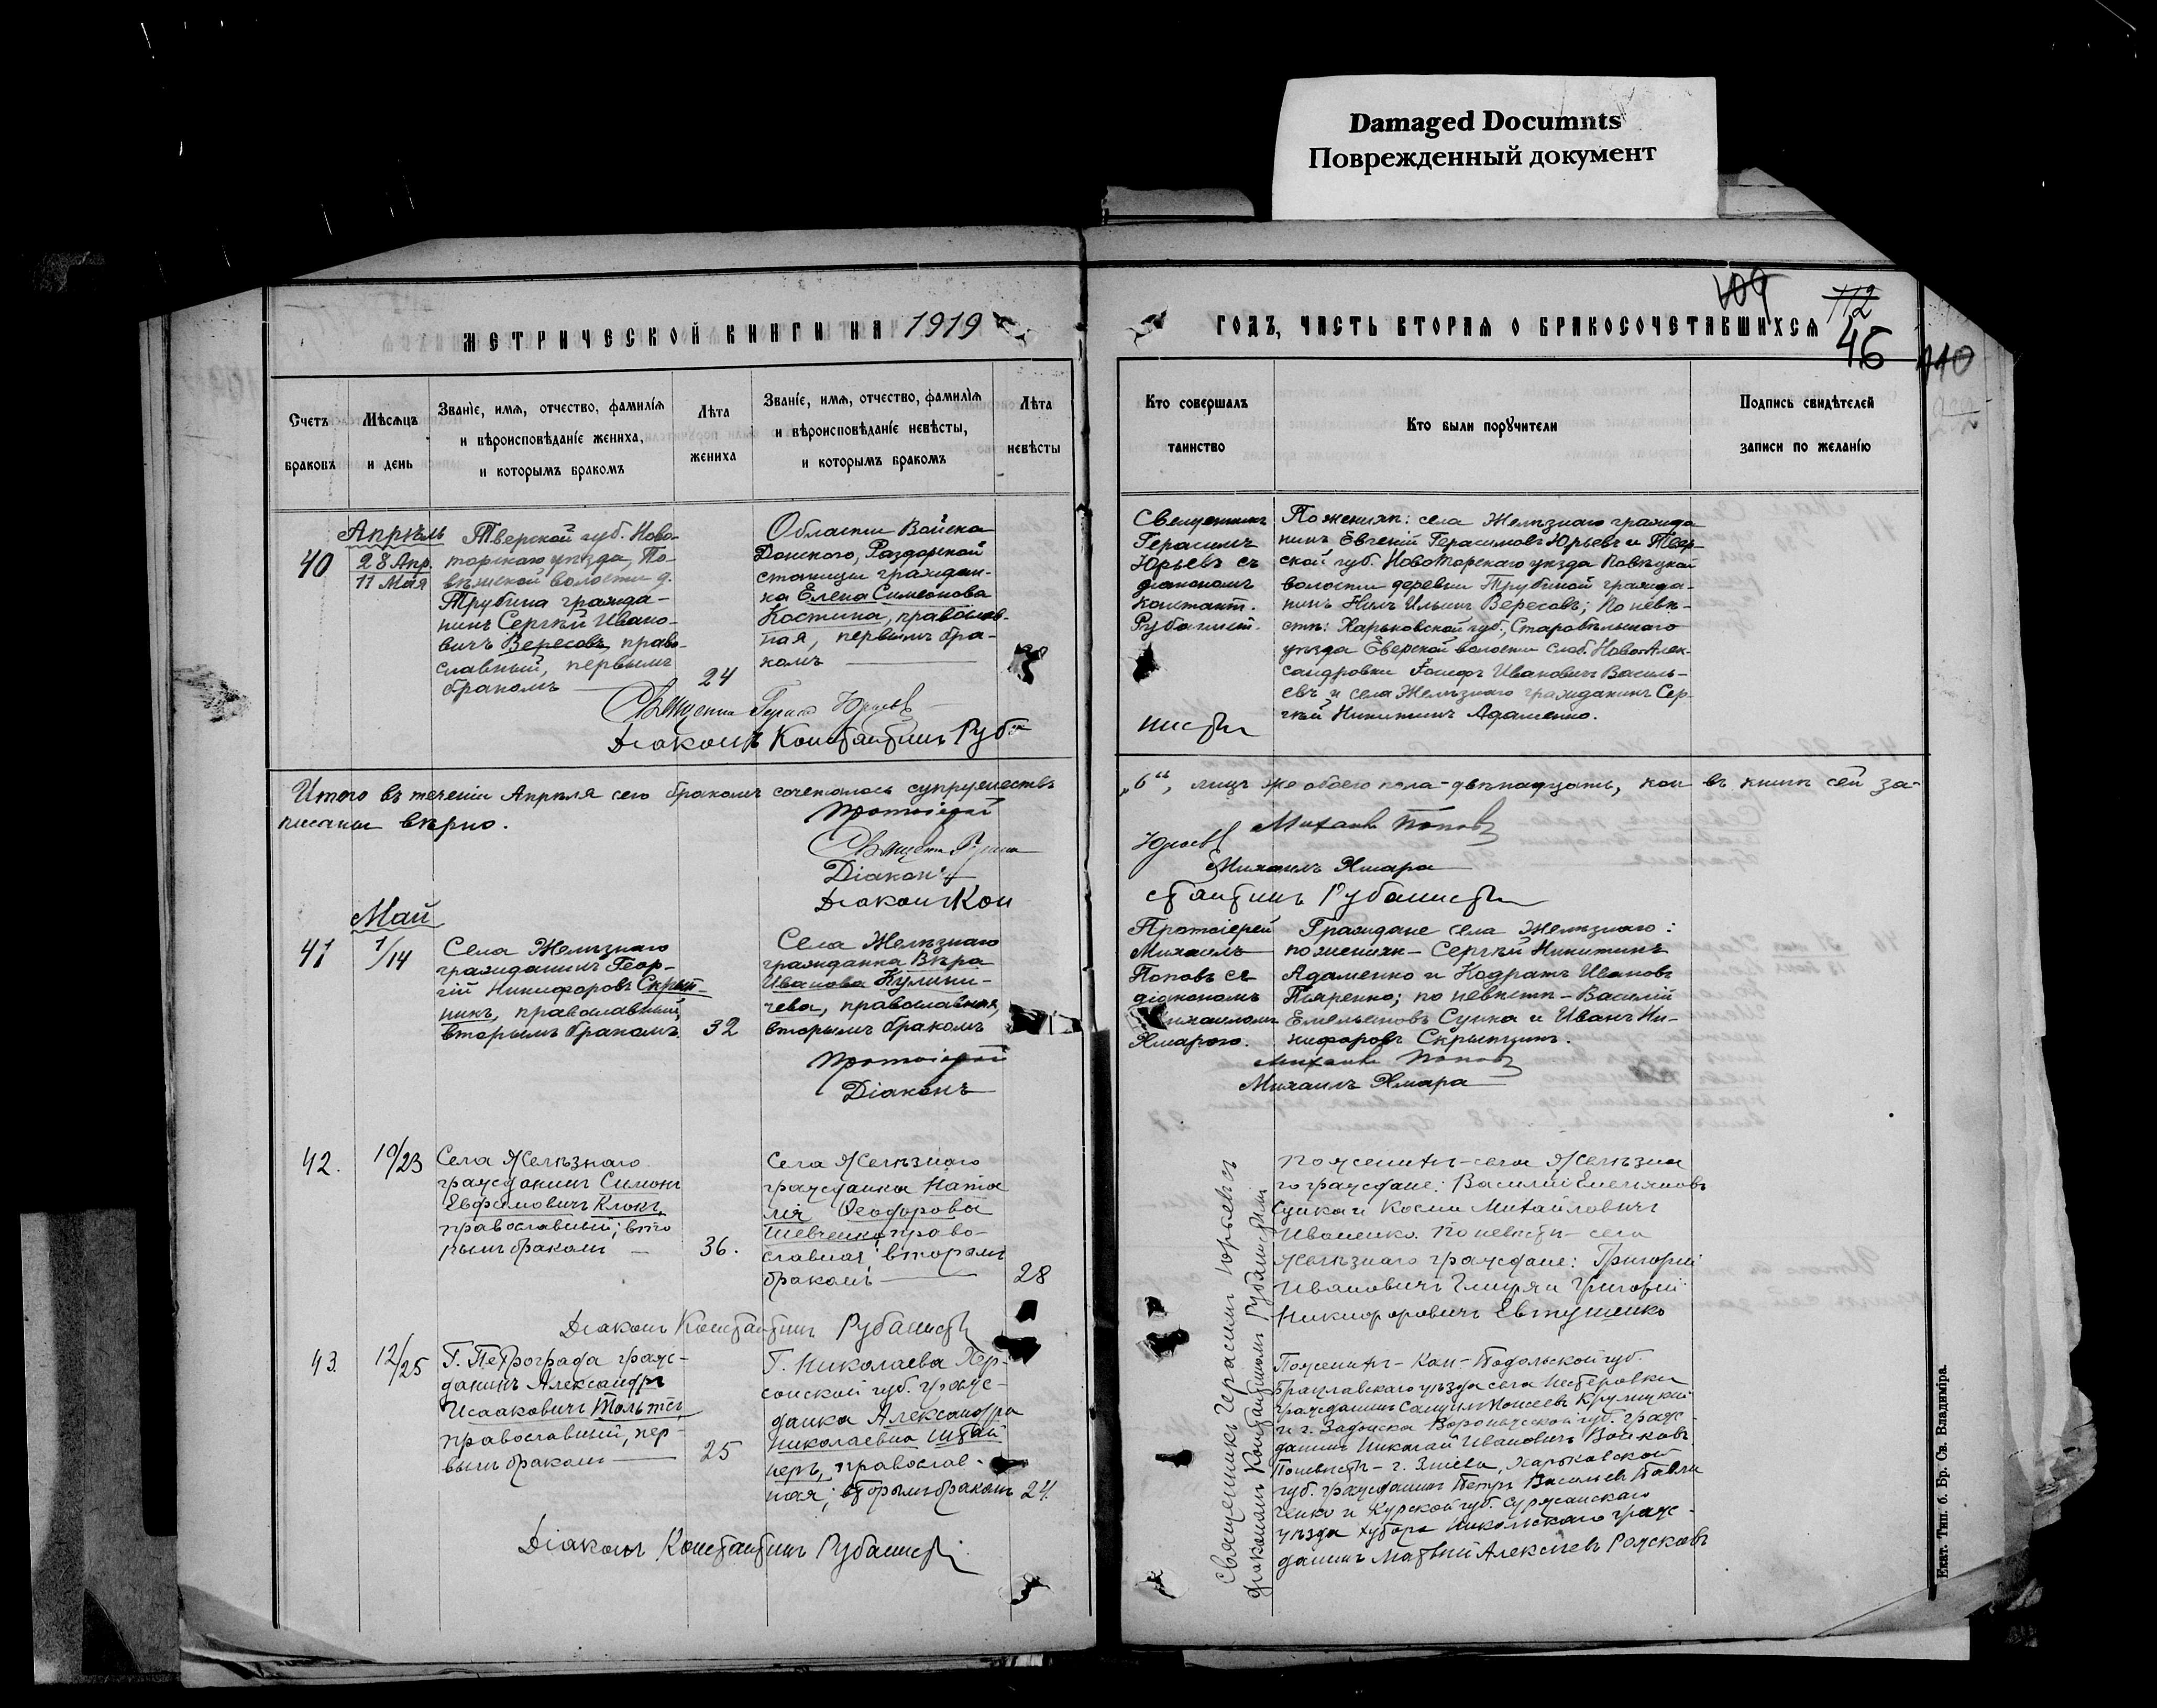 Damaged Documnts
Поврежденный документ
109
112
46
110
МЕТРИЧЕСКОЙ КНИГИ НА 1919
ГОДЪ, ЧАСТЬ ВТОРАЯ О БРАКОСОЧЕТАВШИХСЯ
Счетъ
браковъ
Мѣсяцъ
и день
Званіе, имя, отчество, фамилія
и вѣроисповѣданіе жениха,
и которымъ бракомъ
Лѣта
жениха
Званіе, имя, отчество, фамилія
и вѣроисповѣданіе невѣсты,
и которымъ бракомъ
Лѣта
невѣсты
Кто совершалъ
таинство
Кто были поручители
Подпись свидѣтелей
записи по желанію
40
Апрѣль
28 Апр.
11 Мая
Тверской губ. Ново-
торжскаго уѣзда, По-
вѣжской волости д.
Трубина гражда-
нинъ Сергѣй Ивано-
вичъ Вересовъ, право-
славный, первымъ
бракомъ
24
Области Войска
Донского, Раздорской
станицы граждан-
ка Елена Симеонова
Костина, православ-
ная, первымъ бра-
комъ
Священникъ
Герасимъ
Юрьевъ съ
діакономъ
Констант.
Рубанист.
По женихѣ: села Желѣзнаго гражда
нинъ Евгеній Герасимовъ Юрьевъ и Твер-
ской губ. Новоторжскаго уѣзда Повѣцкой
волости деревни Трубиной гражда-
нинъ Нилъ Ильинъ Вересовъ; по невѣ-
стѣ: Харьковской губ., Старобѣльскаго
уѣзда Еверской волости слоб. НовоАлек-
сандровки Іосифъ Ивановичъ Василь-
евъ и села Желѣзнаго гражданинъ Сер-
гѣй Никитинъ Адаменко.
Священни Герас Юрьевъ
Діаконъ Константинъ Руба
нистъ
Итого въ теченіи Апрѣля сего бракомъ сочеталось супружествъ
„6“, лицъ же обоего пола - двѣнадцать, кои въ книгѣ сей за-
писаны вѣрно.
Протоіерей
Михаилъ Поповъ
Священ Гераси
Юрьевъ
Діаконъ
Михаилъ Ямара
Діаконъ Кон
стантинъ Рубанистъ
Май
41
1/14
Села Желѣзнаго
гражданинъ Геор-
гій Никифоровъ Скрып-
никъ, православный,
вторымъ бракомъ.
32
Села Желѣзнаго
гражданка Вѣра
Иванова Кулини-
чева, православная,
вторымъ бракомъ
Протоіерей
Михаилъ
Поповъ съ
діакономъ
Михаиломъ
Ямарою.
Граждане села Желѣзнаго:
по женихѣ - Сергѣй Никитинъ
Адаменко и Кодратъ Ивановъ
по невѣстѣ - Василій
Емельяновъ Сучка и Иванъ Ни-
кифоровъ Скрыпникъ.
Протоіерей
Михаилъ Поповъ
Діаконъ
Михаилъ Ямара
42.
10/23
Села Желѣзнаго
гражданинъ Симонъ
Евфимовичъ Клокъ,
православный; вто
рымъ бракомъ
36.
Села Желѣзнаго
гражданка Ната
лія Ѳеодорова
Шевченко, право-
славная; вторымъ
бракомъ
28
По женихѣ - села Желѣзна
го граждане: Василій Емельяновъ
Сучка и Косма Михайловичъ
Иваненко. По невѣстѣ - села
Желѣзнаго граждане: Григорій
Ивановичъ и Григорій
Никифоровичъ Евтушенко
Діаконъ Константинъ Рубанистъ
43.
12/25
Г. Петрограда граж-
данинъ Александръ
Исааковичъ Тольтсъ,
православный, пер-
вымъ бракомъ
25
Г. Николаева Хер-
сонской губ. граж-
данка Александра
Николаевна Штай
неръ, православ-
ная; вторымъ бракомъ
24.
Священникъ Герасимъ Юрьевъ съ
діакономъ Константиномъ Рубанистымъ
По женихѣ - Кам-Подольской губ.
Брацлавскаго уѣзда села Нестеровки
гражданинъ Самуилъ Моисеевъ Крулицкій
и г. Задонска Воронежской губ. граж-
данинъ Николай Ивановичъ Волковъ.
По невѣстѣ - г. Зміева, Харьковской
губ. гражданинъ Петръ Васильевъ Павли
ченко и Курской губ. Суджанскаго
уѣзда хутора Никольскаго граж-
данинъ Матвѣй Алексѣевъ Рожковъ
Діаконъ Константинъ Рубанистъ
Екат. Тип. б. Бр. Св. Владиміра.